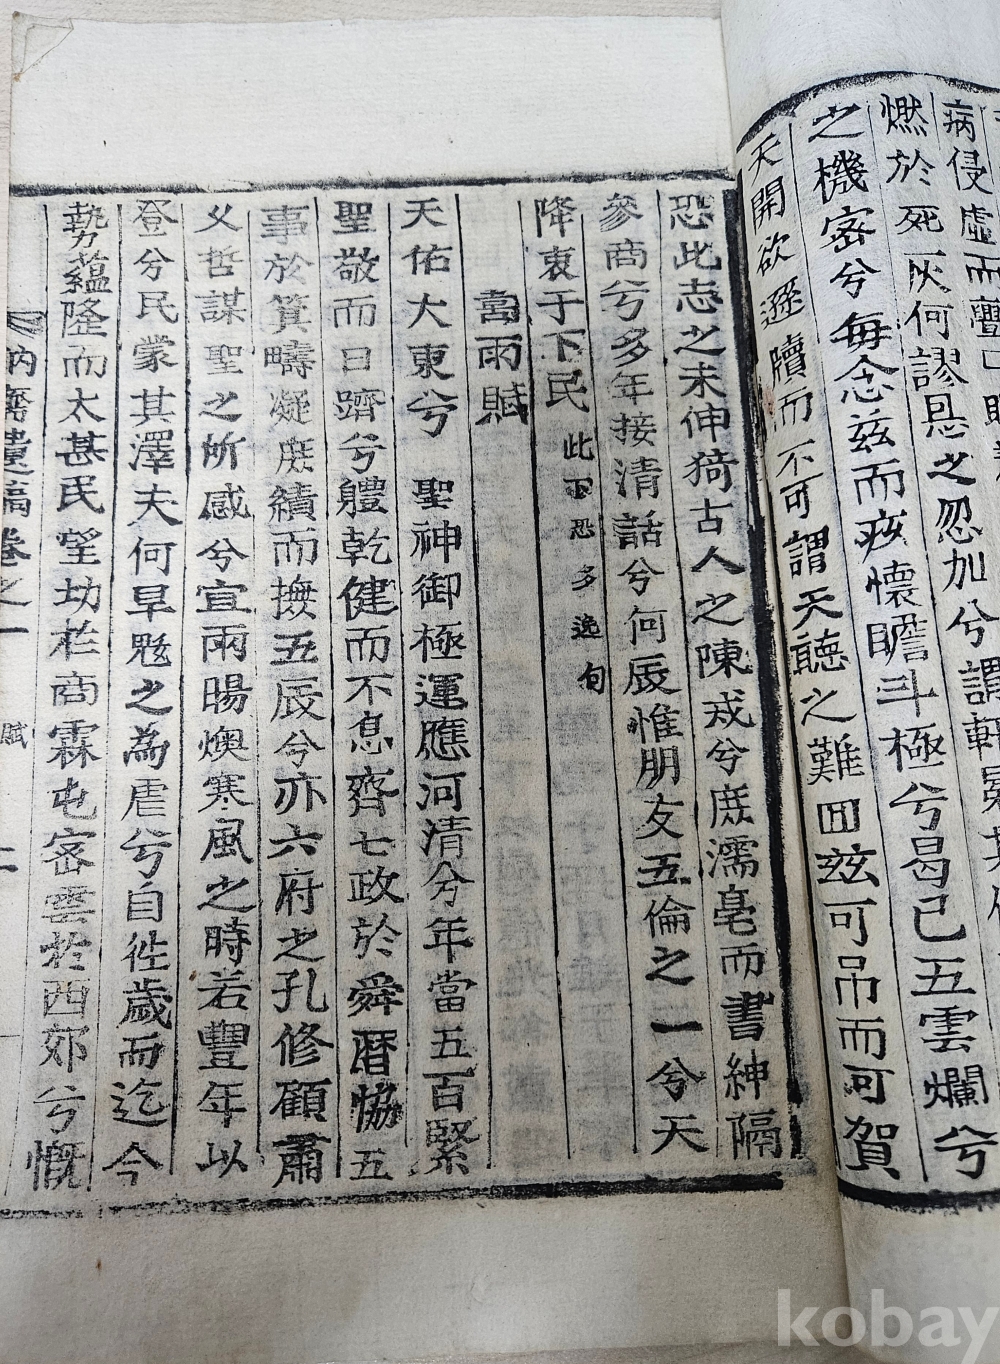 病侵虛而
燃於死灰何謬恩之忽加兮謂軒
之機密兮每念兹而疚懷瞻斗極兮曷已五雲爛兮
天開欲遜牘而不可謂天聽之難回兹可吊而可賀
恐此志之未伸猗古人之陳戒兮庶濡毫而書紳隔
參商兮多年接清話兮何辰惟朋友五倫之一兮天
降衷于下民 此下恐多逸句
喜雨賦
天佑大東兮 聖神御極運應河清兮年當五百緊
聖敬而日躋兮軆乾健而不息齊七政於舜曆恊五
事於箕疇凝庶績而撫五辰兮亦六府之孔修顧肅
乂哲謀聖之所感兮宣雨暘燠寒風之時若豐年以
登兮民蒙其澤夫何旱魃之為虐兮自徃歲而迄今
勢蘊隆而太甚民望切於商霖屯密雲於西郊兮慨
訥齋遺稿卷之一 賦
kobay